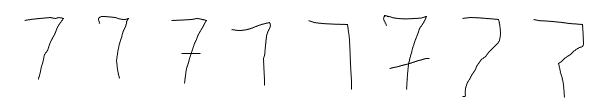 7 7 7 7 7 7 7 7